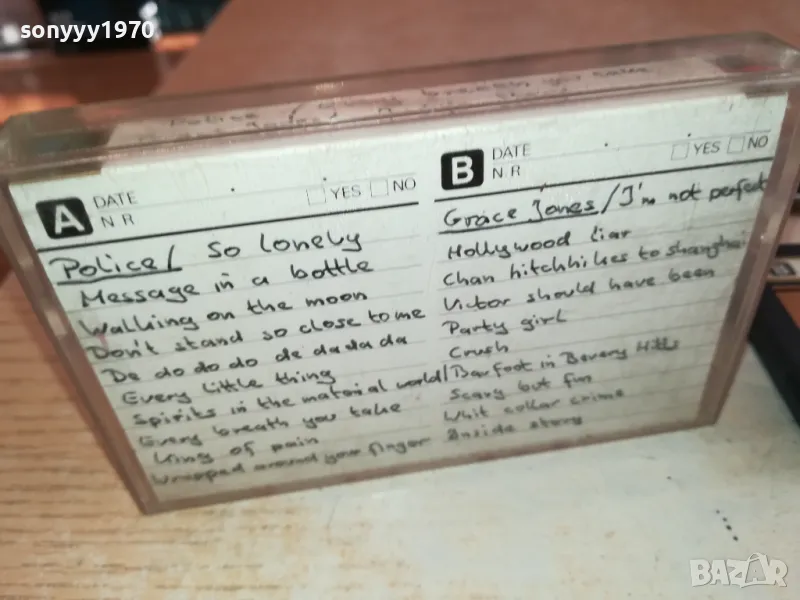 sonyyy1970
Police / Every breath you take
A DATE
N R
YES NO
Police / So lonely
Message in a bottle
Walking on the moon
Don't stand so close to me
De do do do de da da da
Every little thing
Spirits in the material world /
Every breath you take
King of pain
Wrapped around your finger
B DATE
N R
YES NO
Grace Jones / I'm not perfect
Hollywood liar
Chan hitchhikes to shanghai
Victor should have been
Party girl
Crush
Barfoot in Bevery Hills
Scary but fun
Whit collar crime
Inside story
BAZAR